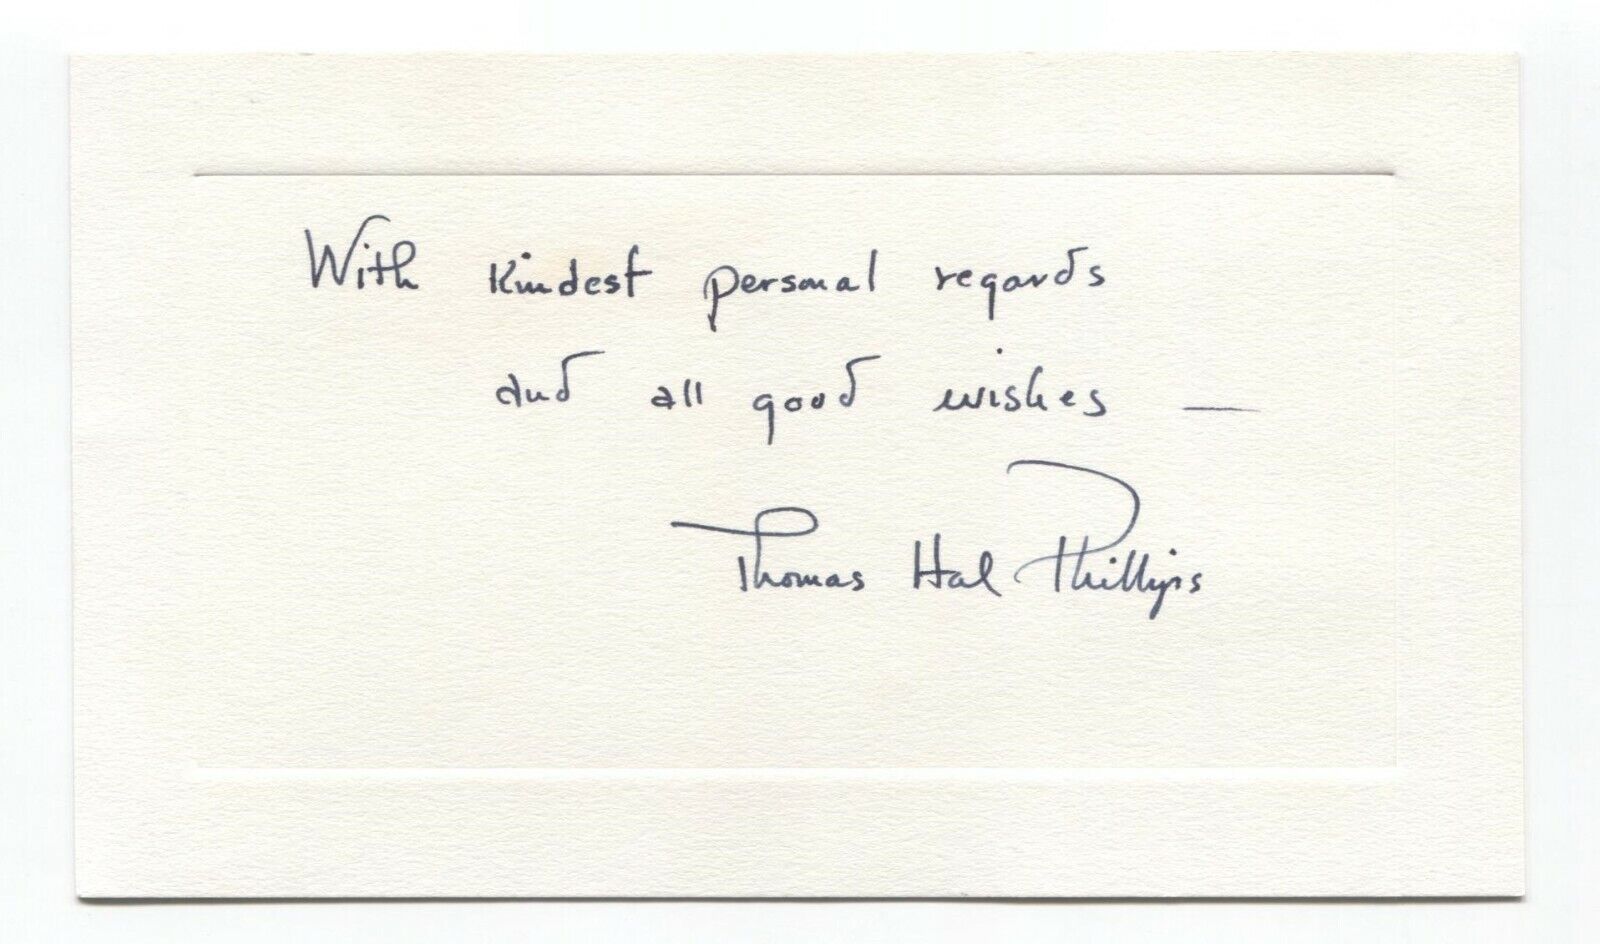 With kindest personal regards
and all good wishes —
Thomas Hal Phillips